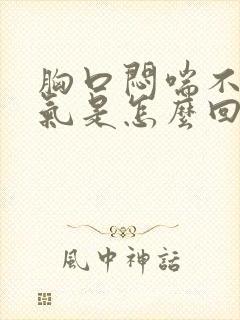 胸口悶喘不
氣是怎麼回
風中神話